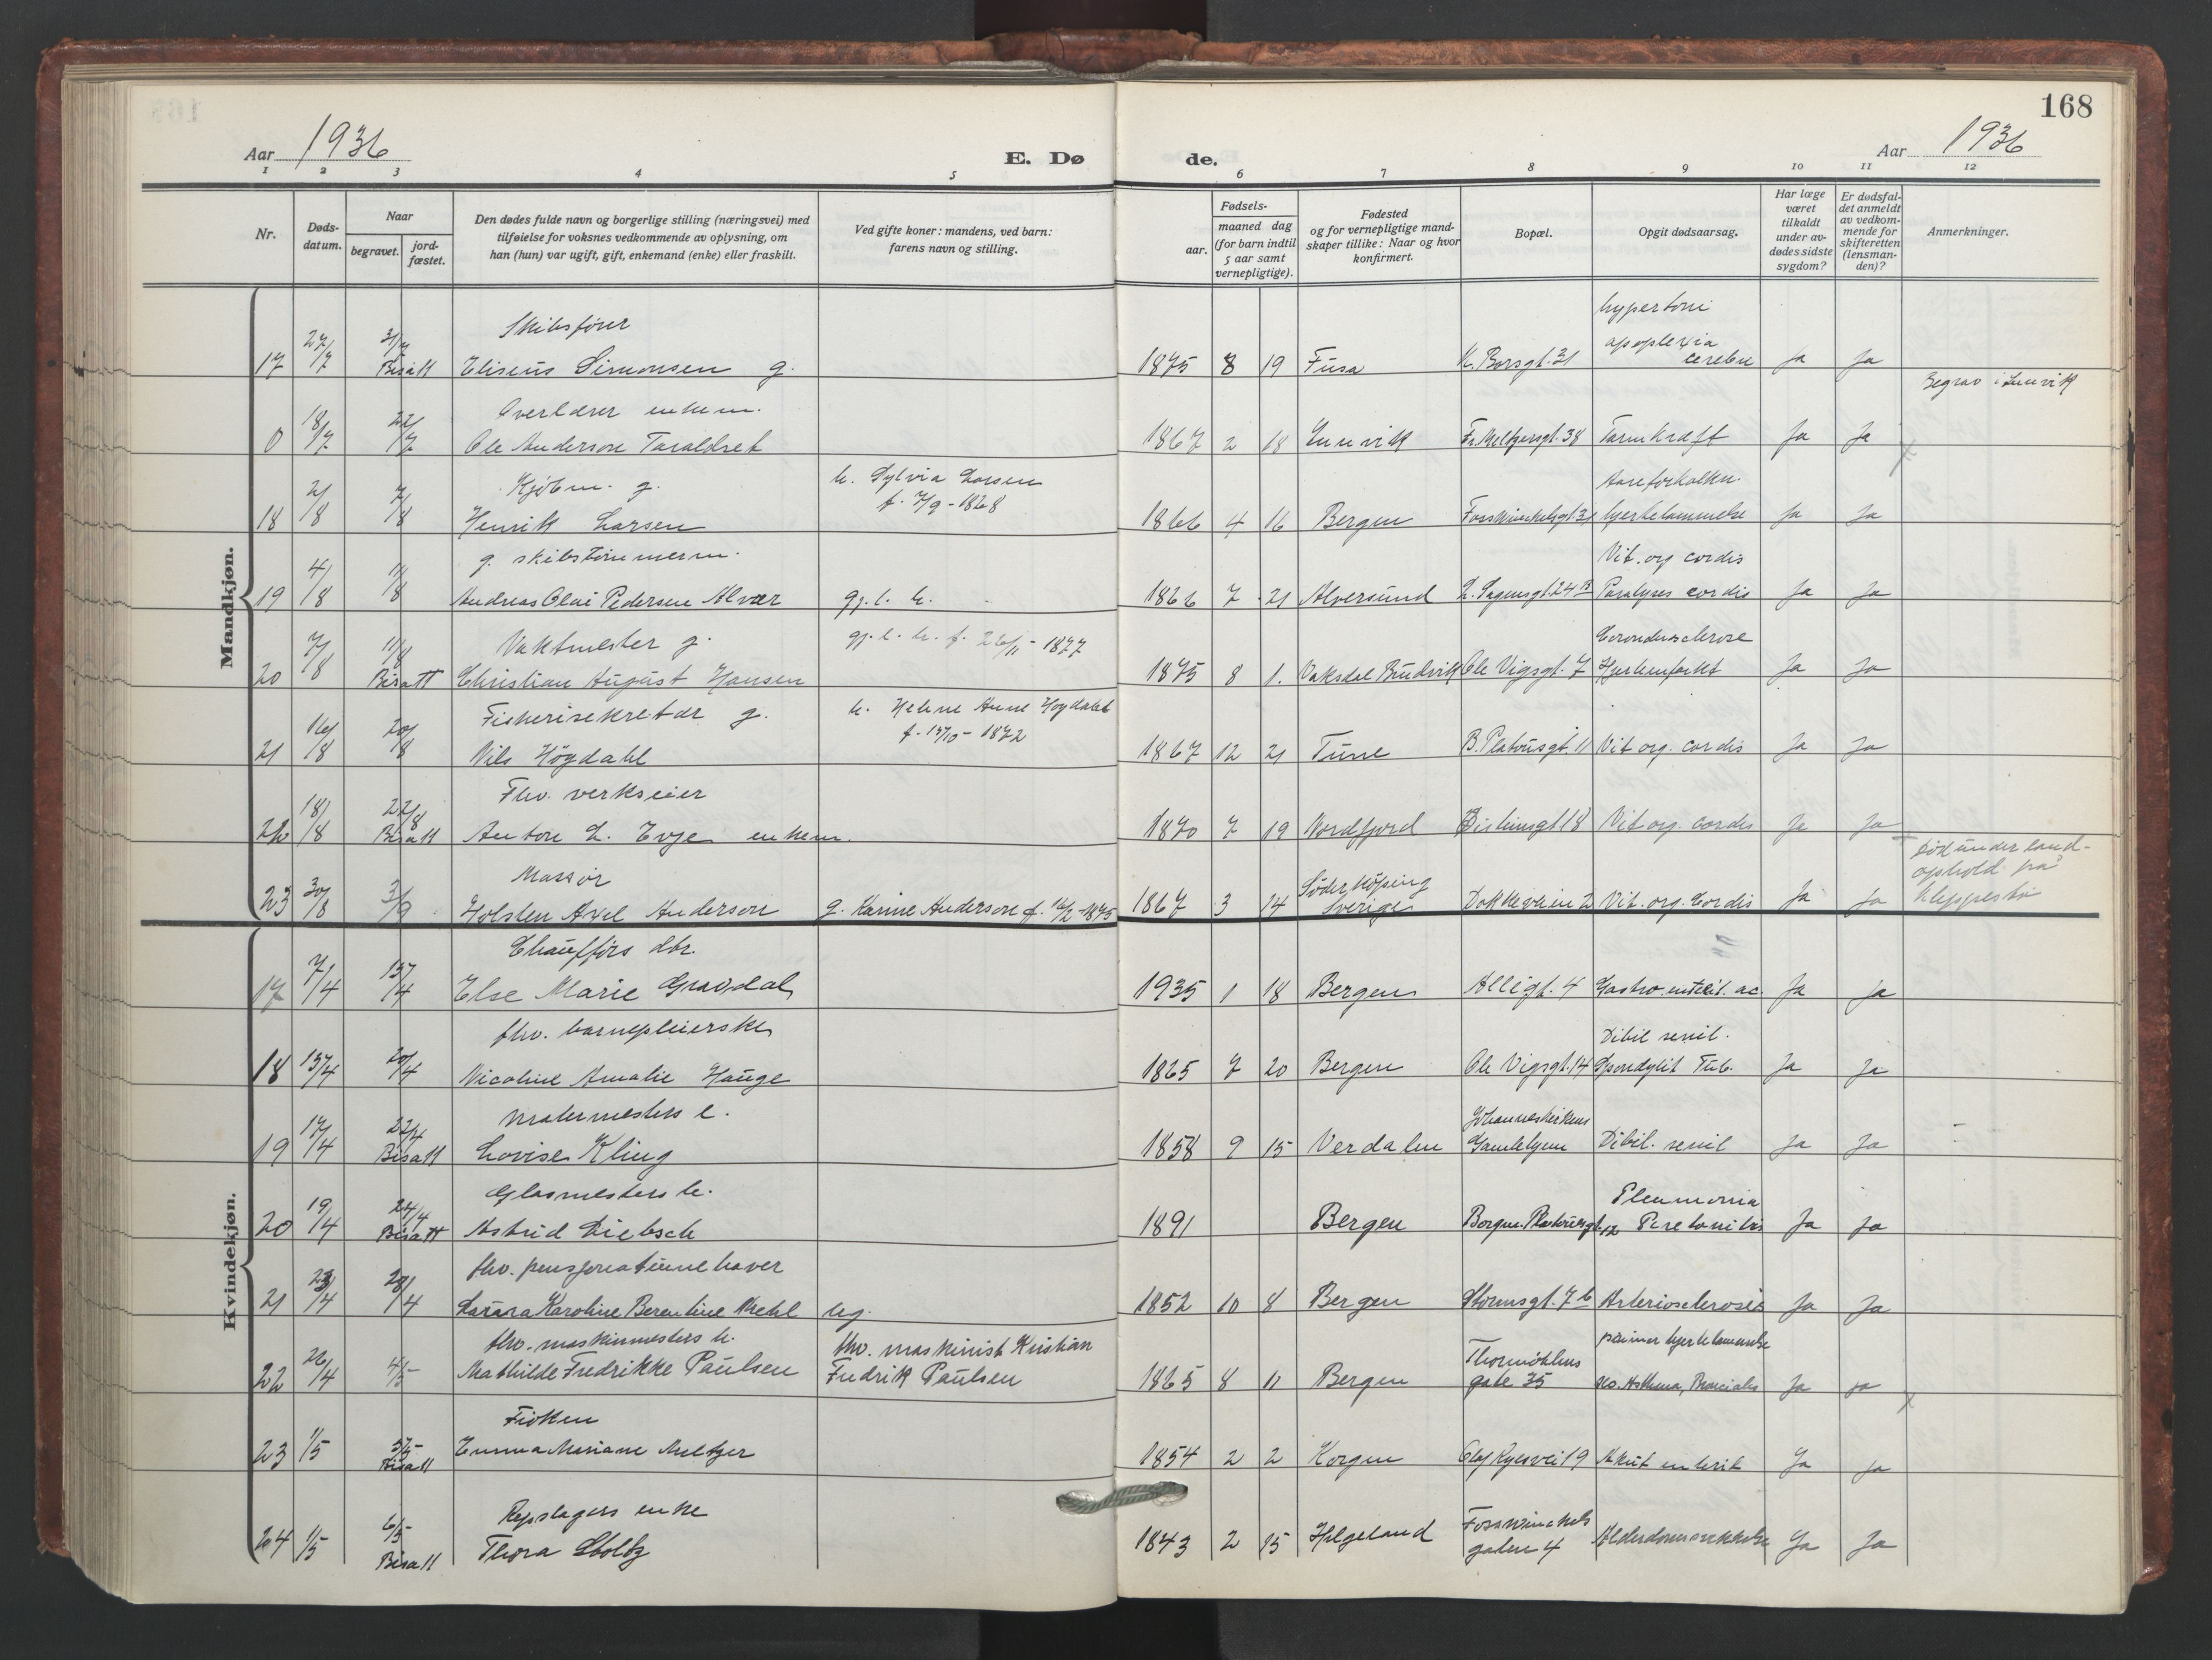 168
Aar 1936
E. Dø
de.
Aar 1936
1 2 3 4 5 6 7 8 9 10 11 12
Nr.
Døds-datum.
Naar
begravet.
jord-fæstet.
Den dødes fulde navn og borgerlige stilling (næringsvei) med
tilføielse for voksnes vedkommende av oplysning, om
han (hun) var ugift, gift, enkemand (enke) eller fraskilt.
Ved gifte koner: mandens, ved barn:
farens navn og stilling.
Fødsels-
aar.
maaned dag
(for barn indtil
5 aar samt
vernepligtige).
Fødested
og for vernepligtige mand-
skaper tillike: Naar og hvor
konfirmert.
Bopæl.
Opgit dødsaarsag.
Har læge
været
tilkaldt
under av-
dødes sidste
sygdom?
Er dødsfal-
det anmeldt
av vedkom-
mende for
skifteretten
(lensman-
den)?
Anmerkninger.
Mandkjøn.
Skibsfører hypertoni
17 27/7 31/7 Bisatt Eliseus Simonsen g. 1875 8 19 Fusa K. Borsgt. 31 apoplexia cerebri Ja Ja
Overlærer enkem. Begrav i Lunvik
0 18/7 22/7 Ole Anderson Taraldset 1867 2 18 Lunvik Fr. Meltzersgt. 38 Tarmkræft Ja Ja
Kjøbm. g. h. Sylvia Larsen f. 7/9-1868 Aareforkalkn.
18 2/8 7/8 Henrik Larsen 1866 4 16 Bergen Fosswinckelsgt. 31 hjertelammelse Ja Ja
g. skibstømmerm. Vit. org cordis
19 4/8 11/8 Andreas Olai Pedersen Alvær gj. l. h. 1866 7 21 Alversund L. Sagensgt. 24 B Paralyses cordis Ja Ja
Vaktmester g. gj. l. h. f. 26/11-1877
20 7/8 11/8 Bisatt Christian August Hansen 1875 8 1. Vaksdal Bruvik Ole Vigsgt. 7 Hjerteinfarkt Ja Ja
Fiskerisekretær g. h. Helene Anne Høgdahl f. 17/10-1872
21 16/8 20/8 Nils Högdahl 1867 12 21 Tune B. Platousgt. 11 Vit org. cordis Ja Ja
Fhv. verkseier
22 18/8 22/8 Bisatt Anton L. Evje enkem. 1870 7 19 Nordfjord 18 Vit org. cordis Ja Ja
Massør Død under land-
ophold på
Kleppestø
23 30/8 3/9 Holsten Axel Anderson g. Karine Anderson f. 16/2-1875 1867 3 14 Söderköping Sverige Dokkeveien 2 Vit. org. Cordis Ja Ja
Kvindekjøn.
Chaufførs dtr.
17 7/4 13/4 Else Marie Gravdal 1935 1 18 Bergen Allegt. 4 Gastro enterit. ac. Ja Ja
fhv. barnepleierske Dibil senil.
18 13/4 20/4 Nicoline Amalie Hauge 1865 7 20 Bergen Ole Vigsgt. 14 Spondylit Tub. Ja Ja
malermesters e. Johanneskirkens
19 17/4 22/4 Bisatt Lovise Kling 1858 9 15 Verdalen Gamlehjem Dibil. senil Ja Ja
Glasmesters h. Pleumonia
20 19/4 24/4 Bisatt Astrid Diebsch 1891 Bergen Borgm. Platousgt. 12 Peretonitis Ja Ja
fhv. pensjonatinnehaver
21 23/4 28/4 Laura Karoline Berentine Krehl ug. 1852 10 8 Bergen Stormsgt. 7 b Arteriosclerosis Ja Ja
fhv. maskinmesters h. fhv. maskinist Kristian primær hjertelammelse
22 26/4 4/5 Mathilde Fredrikke Paulsen Fredrik Paulsen 1865 8 11 Bergen Thormøhlens gate 35 sec. Asthma, Broncialis Ja Ja
Frøken
23 1/5 5/5 Bisatt Emma Mariane Meltzer 1854 2 2 Korgen Olaf Ryesvei 19 Akut enterit Ja Ja
Repslagers enke
24 1/5 6/5 Bisatt Thora Stoltz 1843 2 15 Helgeland Fosswinckels gaten 4 Alderdomssvekkelse Ja Ja